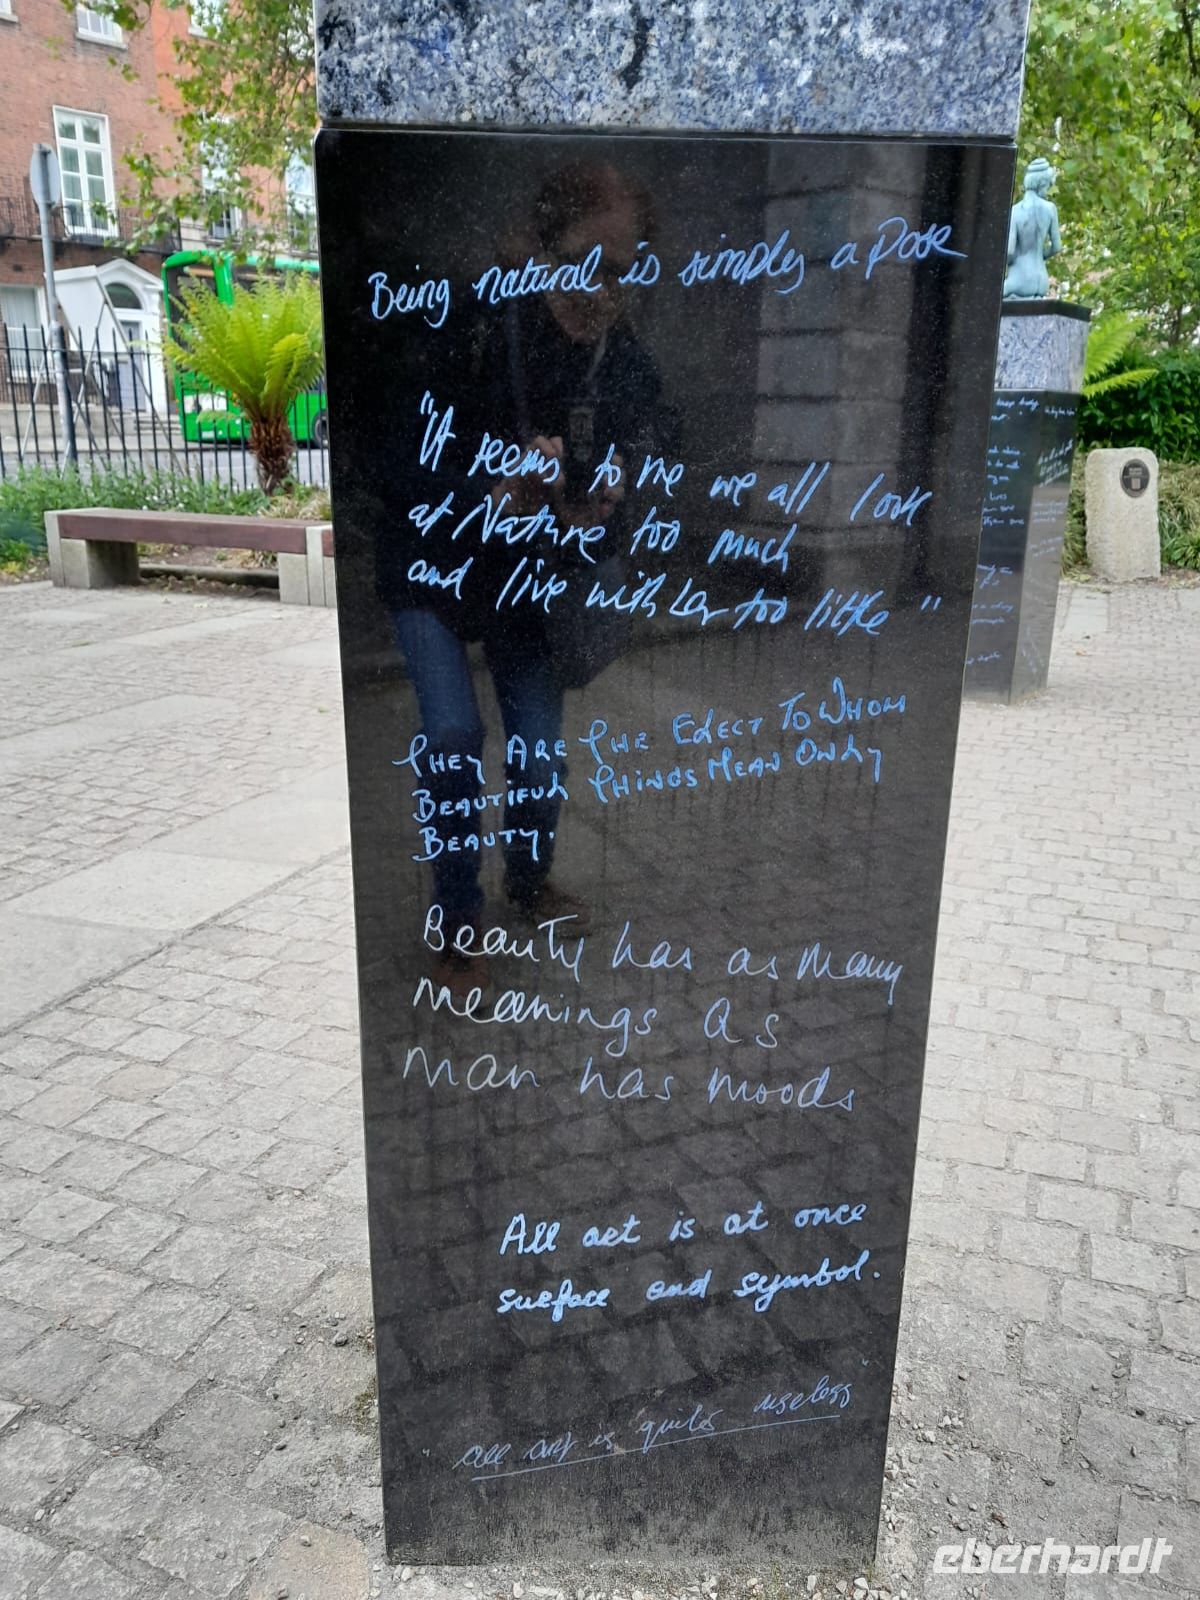 Being natural is simply a pose
"It seems to me we all look
at Nature too much
and live with her too little"
THEY ARE THE ELECT TO WHOM
BEAUTIFUL THINGS MEAN ONLY
BEAUTY.
Beauty has as many
meanings as
man has moods
All art is at once
surface and symbol.
"All art is quite useless"
eberhardt